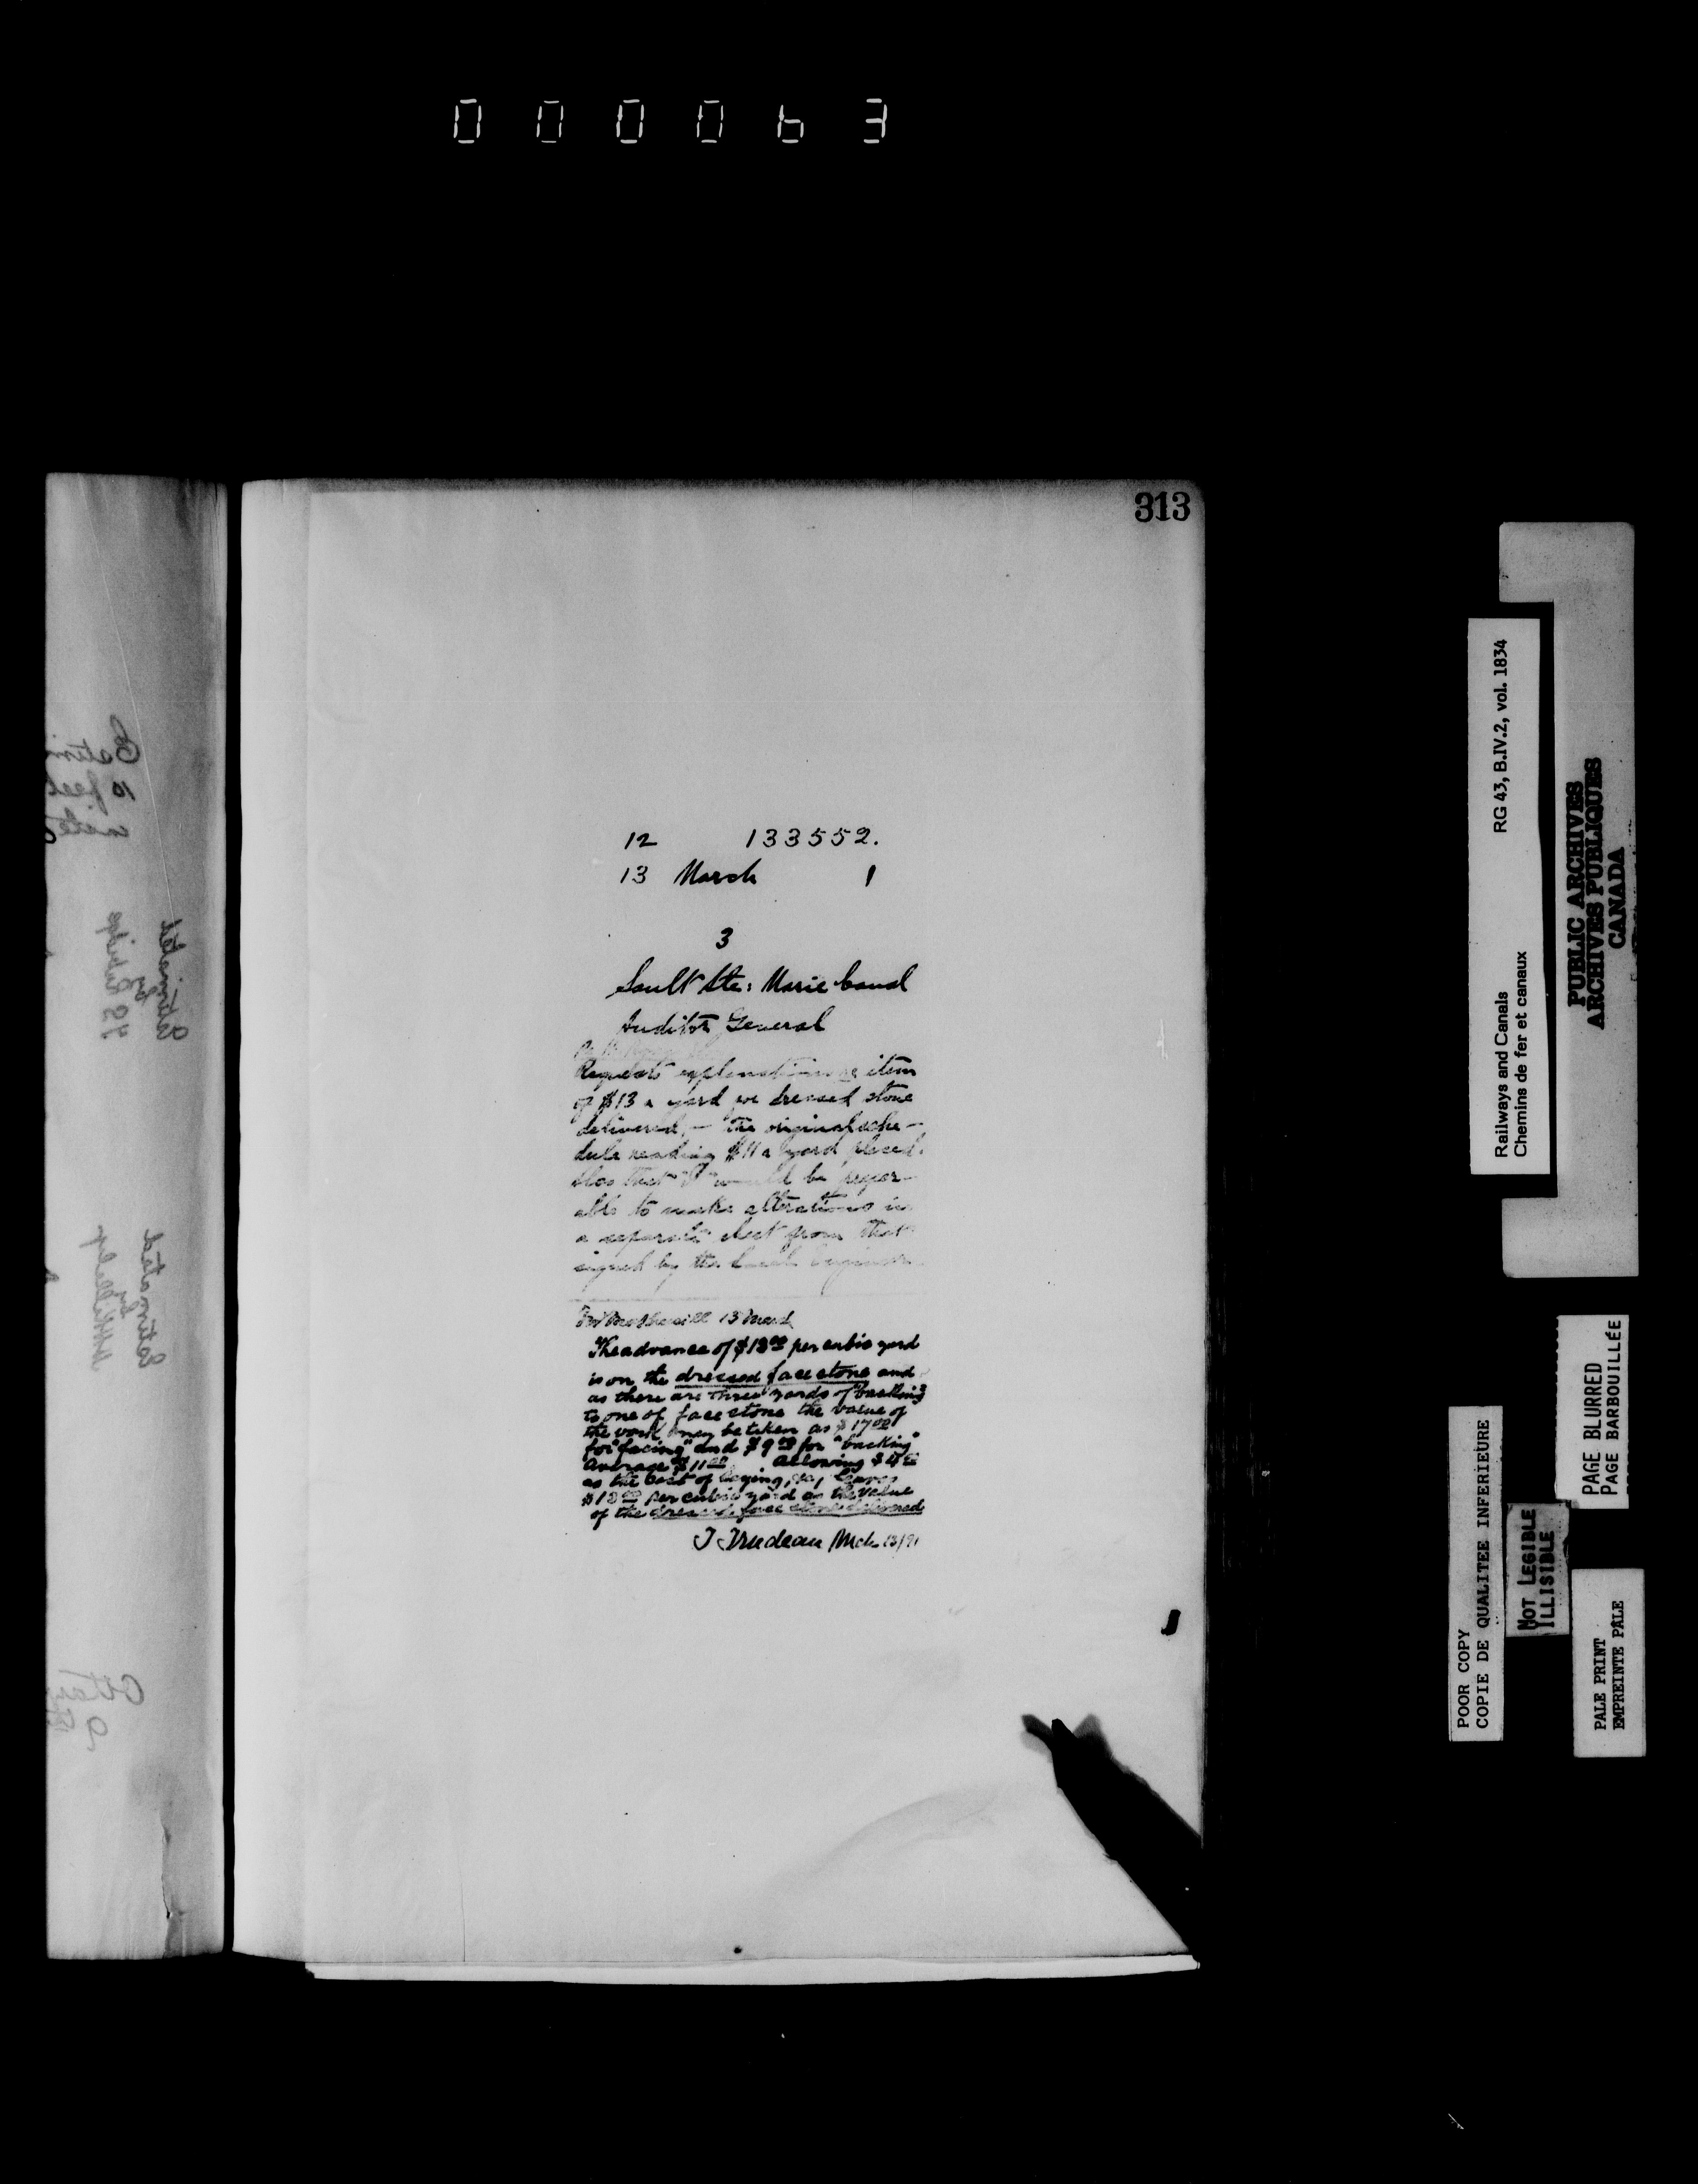 000063
313
12 133552.
13 March 1
3
Sault Ste: Marie Canal
Auditor General
Requests explanation re item
of $13 a yard for dressed stone
delivered, — the original sche-
dule reading $11 a yard placed.
Also that it would be prefer-
able to make alterations in
a separate sheet from that
signed by the Local Engineer
13 March
The advance of $13 00 per cubic yard
is on the dressed face stone and
as there are three yards of "backing"
to one of face stone the value of
the work may be taken as $17 00
for "facing" and $9 00 for "backing"
Average $11 00. Allowing $4 00
as the cost of laying, &c, leaves
$13 00 per cubic yard as the value
of the dressed face stone delivered
T Trudeau Mch 13/91
Estimated
by
Estimated
by
10 feet
Railways and Canals RG 43, B.IV.2, vol. 1834
Chemins de fer et canaux
PUBLIC ARCHIVES
ARCHIVES PUBLIQUES
CANADA
PAGE BLURRED
PAGE BARBOUILLÉE
POOR COPY
COPIE DE QUALITEE INFERIEURE
NOT LEGIBLE
ILLISIBLE
PALE PRINT
EMPREINTE PÂLE